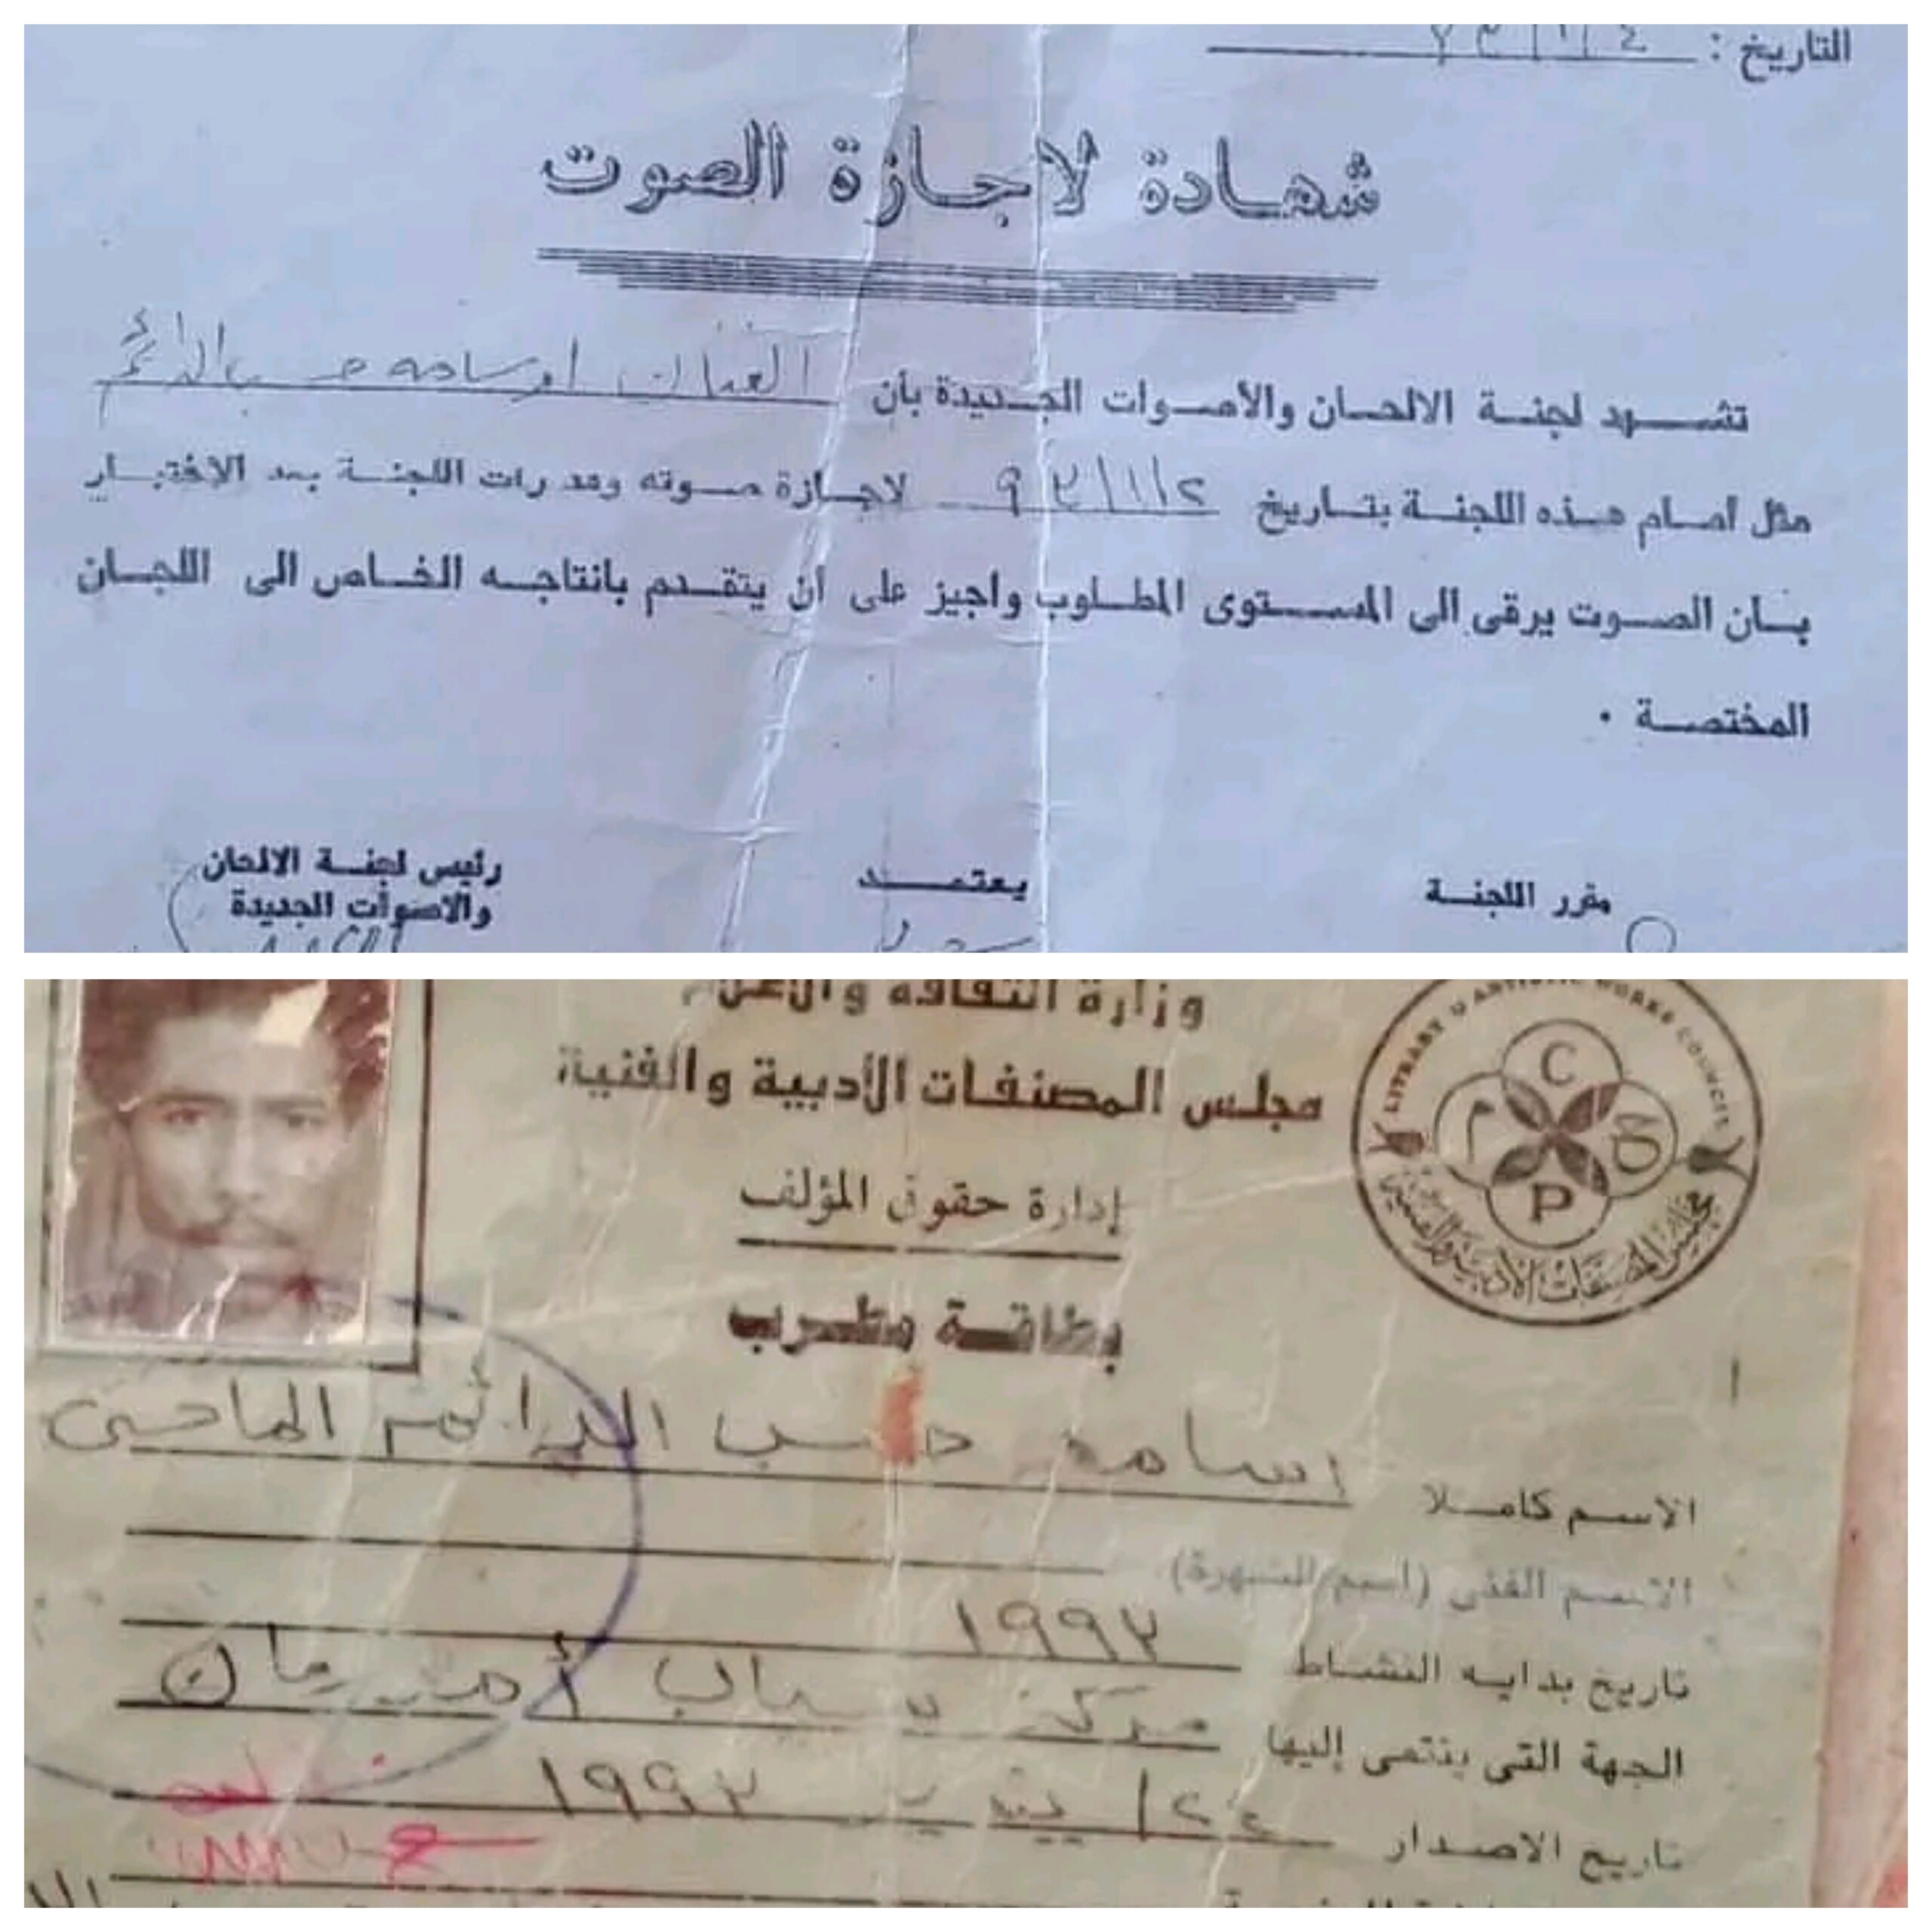 التاريخ :
شهادة لاجازة الصوت
تشهد لجنة الالحان والأصوات الجديدة بأن الفنان اسامه حسب الدائم
مثل امام هذه اللجنة بتاريخ ٩٣/١/٢ لاجازة صوته وقد رات اللجنة بعد الاختبار
بان الصوت يرقى الى المستوى المطلوب واجيز على أن يتقدم بانتاجه الخاص الى اللجان
المختصة .
مقرر اللجنة
يعتمد
رئيس لجنة الالحان
والاصوات الجديدة
وزارة الثقافة والاعلام
مجلس المصنفات الأدبية والفنية
LITRARY & ARTISTIC WORKS COUNCIL
C
م
ح
P
مجلس المصنفات الأدبية والفنية
إدارة حقوق المؤلف
بطاقة مطرب
الاسم كاملا اسامه حسب الدائم الماحى
الاسم الفنى (اسم الشهرة)
تاريخ بدايه النشاط ١٩٩٣
الجهة التى ينتمى إليها مركز شباب أمدرمان
تاريخ الاصدار يناير ١٩٩٣